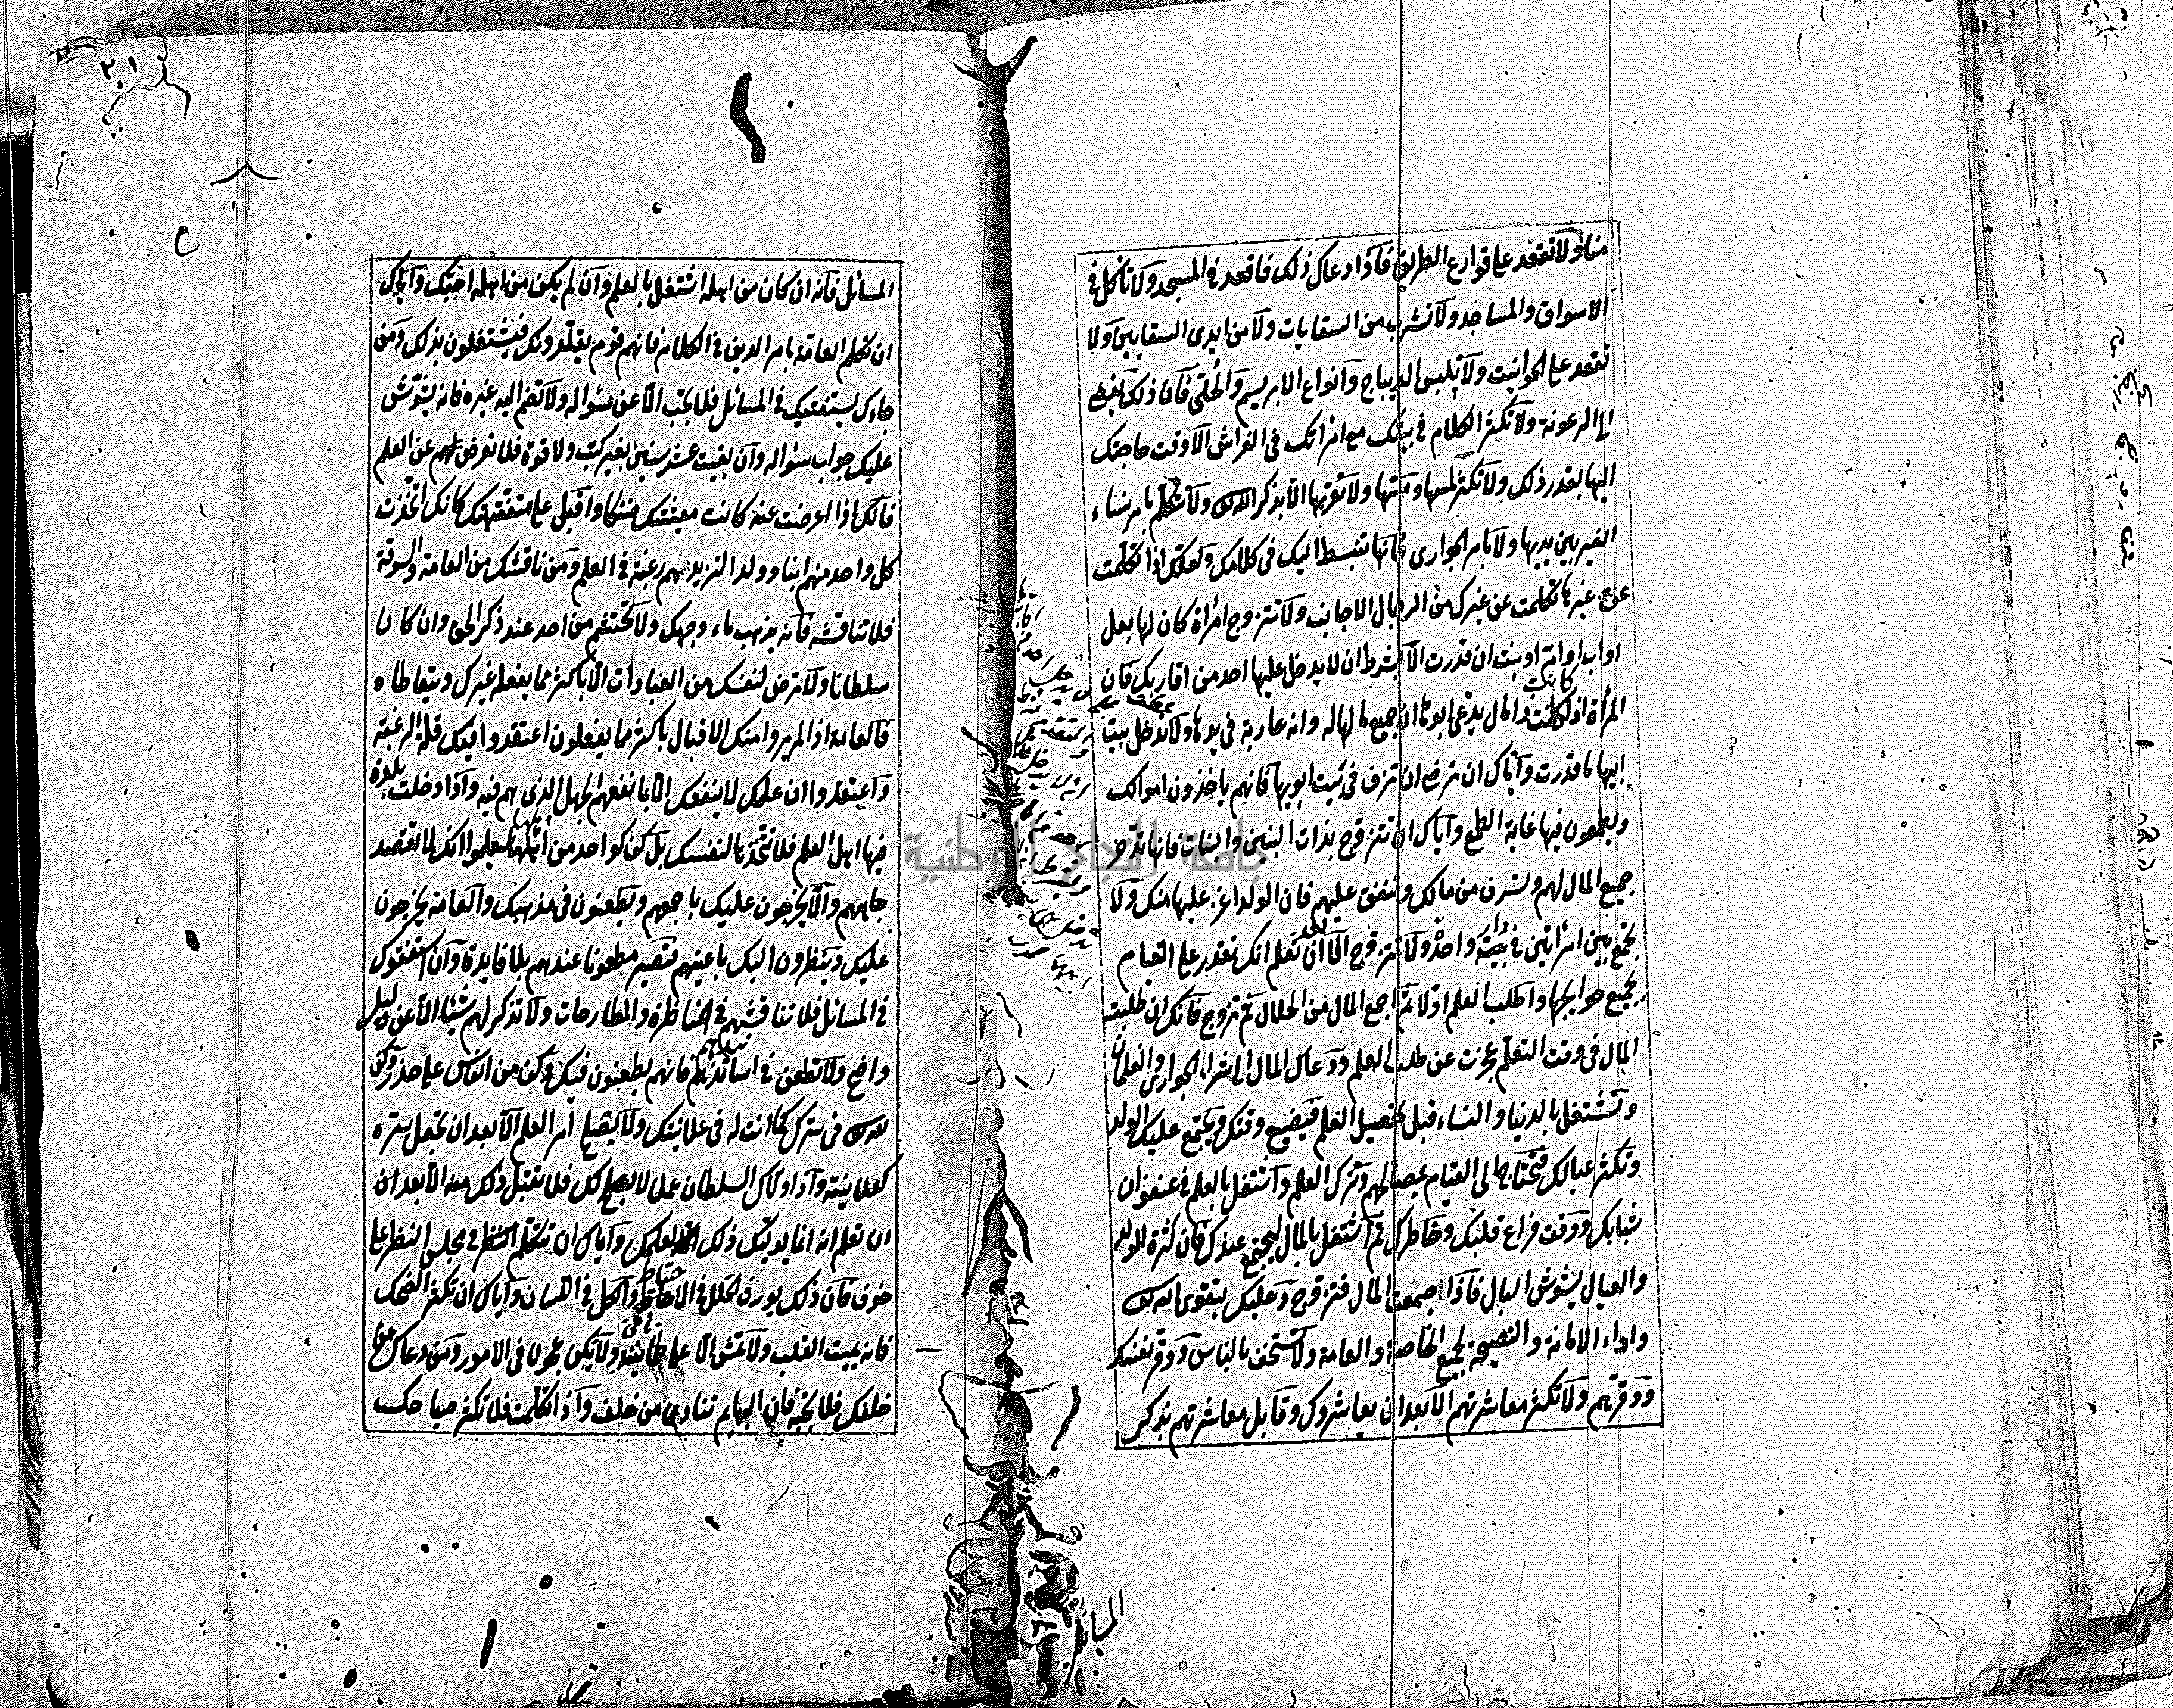 منافذ ولا تقعد على قوارع الطريق فاذا دعاك ذلك فاقعد في المسجد ولا تأكل في
الاسواق والمساجد ولا تشرب من السقايات ولا من ايدي السقايين ولا
تقعد على الحوانيت ولا تلبس الديباج وانواع الابريسم والحلي فان ذلك يفضي
الى الرعونة ولا تكثر الكلام في بيتك مع امراتك في الفراش الا وقت حاجتك
اليها بقدر ذلك ولا تكثر لمسها ومسها ولا تقربها الا بذكر الله تعالى ولا تتكلم بامر نساء
الغير بين يديها ولا بامر الجواري فانها تنبسط اليك في كلامك ولعلك اذا تكلمت
عن غيرها تكلمت عن غيرك من الرجال الاجانب ولا تتزوج امرأة كان لها بعل
او اب او ام او بنت ان قدرت الا بشرط ان لا يدخل عليها احد من اقاربك فان
المرأة اذا كانت ذا مال يدعي ابوها ان جميع مالها له وانه عارية في يدها ولا تدخل بيت
ابيها ما قدرت واياك ان ترضى ان تزف في بيت ابويها فانهم ياخذون اموالك
ويطمعون فيها غاية الطمع واياك ان تتزوج بذات البنين والبنات فانها تدخر
جميع المال لهم وتسرق من مالك وتنفق عليهم فان الولد اعز عليها منك ولا
تجمع بين امرأتين في دار واحدة ولا تتزوج الا بعد ان تعلم انك تقدر على القيام
بجميع حوايجها واطلب العلم اولا ثم اجمع المال من الحلال ثم تزوج فانك ان طلبت
المال في وقت التعلم عجزت عن طلب العلم ودعاك المال الى شراء الجواري والغلمان
وتشتغل بالدنيا والنساء قبل تحصيل العلم فيضيع وقتك ويجتمع عليك الولد
وتكثر عيالك فتحتاج الى القيام بمصالحهم وتترك العلم واشتغل بالعلم في عنفوان
شبابك ووقت فراغ قلبك وخاطرك ثم اشتغل بالمال ليجتمع عندك فان كثرة الولد
والعيال يشوش البال فاذا جمعت المال فتزوج وعليك بتقوى الله تعالى
واداء الامانة والنصيحة لجميع الخاصة والعامة ولا تستخف بالناس ووقر نفسك
ووقرهم ولا تكثر معاشرتهم الا بعد ان يعاشروك وقابل معاشرتهم بذكر
المسائل
المسائل فانه ان كان من اهله اشتغل بالعلم وان لم يكن من اهله احبك واياك
ان تكلم العامة بامر الدين في الكلام فانهم قوم يقلدونك فيشتغلون بذلك ومن
جاءك يستفتيك في المسائل فلا تجب الا عن سؤاله ولا تضم اليه غيره فانه يشوش
عليك جواب سؤاله وان بقيت عشر سنين بغير كسب ولا قوة فلا تعرض عن العلم
فانك اذا اعرضت عنه كانت معيشتك ضنكا واقبل على متفقهتك كانك اتخذت
كل واحد منهم ابنا وولدا لتزيدهم رغبة في العلم ومن ناقشك من العامة والسوقة
فلا تناقشه فانه يذهب ماء وجهك ولا تحتشم من احد عند ذكر الحق وان كان
سلطانا ولا ترض لنفسك من العبادات الا باكثر مما يفعله غيرك ويتعاطاه
فالعامة اذا لم يروا منك الاقبال باكثر مما يفعلون اعتقدوا فيك قلة الرغبة
واعتقدوا ان علمك لا ينفعك الا ما نفعهم الجهل الذي هم فيه واذا دخلت بلدة
فيها اهل العلم فلا تتخذها لنفسك بل كن كواحد من اهلها ليعلموا انك لا تقصد
جاههم والا يخرجون عليك باجمعهم ويطعنون في مذهبك والعامة يخرجون
عليك وينظرون اليك باعينهم فتصير مطعونا عندهم بلا فايدة وان استفتوك
في المسائل فلا تناقشهم في المناظرة والمطارحات ولا تذكر لهم شيئا الا عن دليل
واضح ولا تطعن في اساتذتهم فانهم يطعنون فيك وكن من الناس على حذر وكن
لله تعالى في سرك كما انت له في علانيتك ولا يصلح امر العلم الا بعد ان تجعل سره
كعلانيته واذا ولاك السلطان عملا لا يصلح لك فلا تقبل ذلك منه الا بعد ان
ان تعلم انه انما يوليك ذلك لعلمك واياك ان تتكلم في مجلس النظر على
خوف فان ذلك يورث الخلل في الاحاطة والكل في اللسان واياك ان تكثر الضحك
فانه يميت القلب ولا تمش الا على طمأنينة ولا تكن عجولا في الامور ومن دعاك من
خلفك فلا تجبه فان البهايم تنادى من خلف واذا تكلمت فلا تكثر صياحك